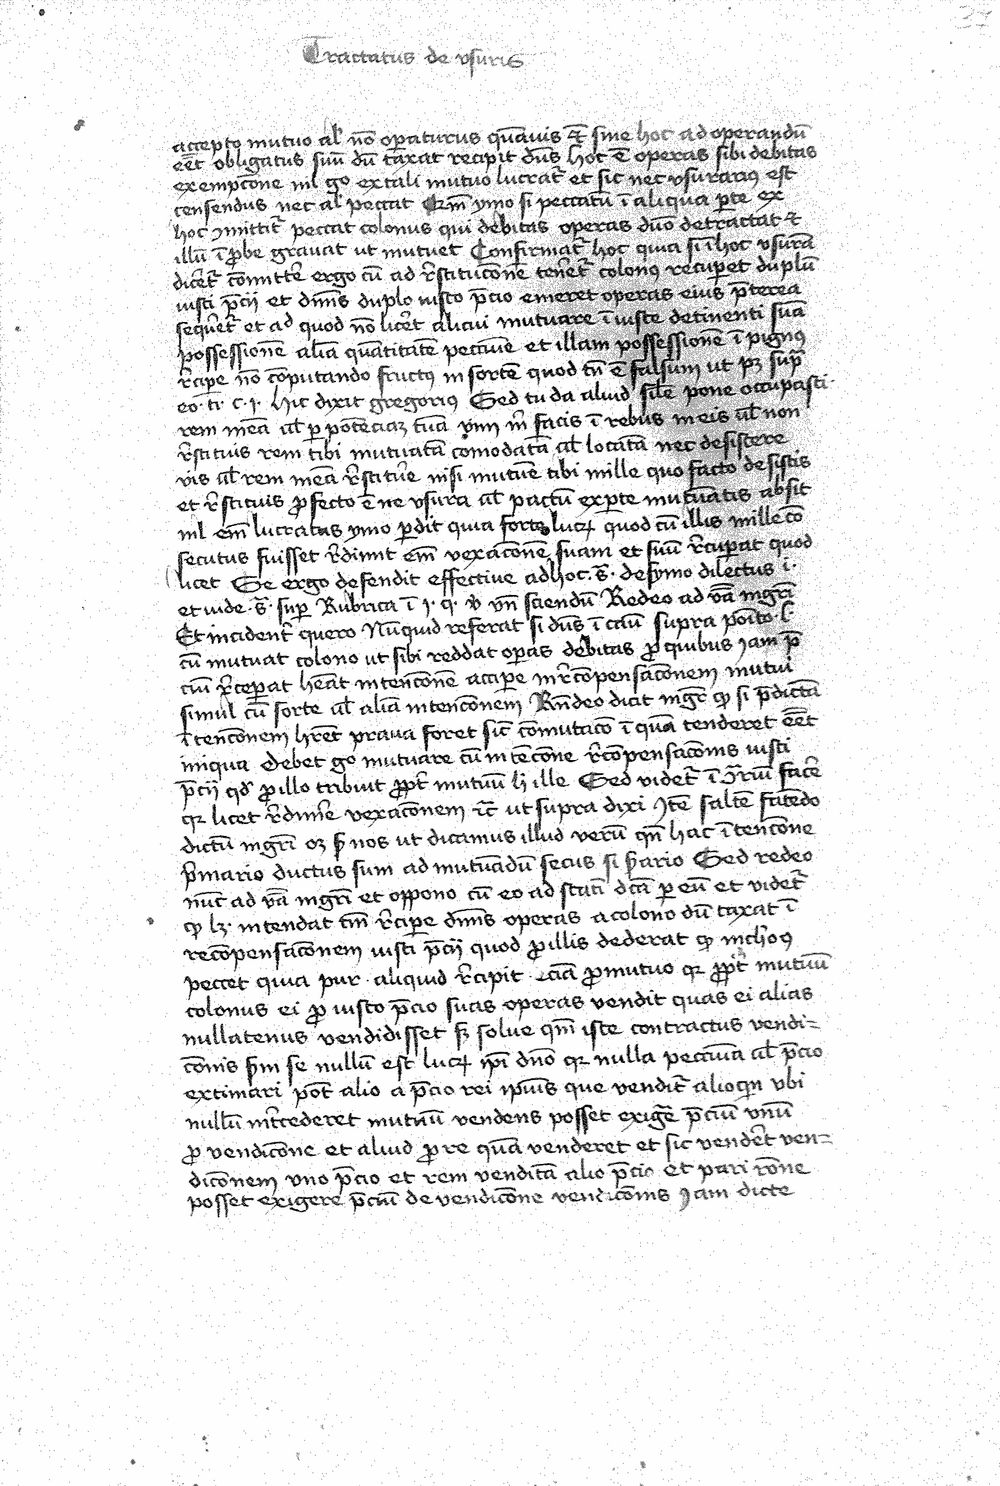 37
Tractatus de vsuris
accepto mutuo al' nō oꝑaturus quāuis & sine hoc ad operandū
eēt obligatus suū dū taxat recipit dn̄s hoc ē operas sibi debitas
exempcōne nil gͦ ex tali mutuo lucrat᷑ et sic nec vsurariꝯ est
censendus nec al' peccat Qm̄ ymo si peccatū ī aliqua ꝑte ex
hoc ꝯmittit᷑ peccat colonus qui debitas operas dn̄o detractat &
illū īprobe grauat ut mutuet Confirmat᷑ hoc quia si ī hoc vsurā
dicet᷑ cōmitte᷑ ergo cū ad restitucōne tenet᷑ colonꝯ recuꝑet duplū
iusti p̄cii et dn̄us duplo iusto p̄cio emeret operas eius p̄terea
seqͥret᷑ et ad quod nō licet alicui mutuare īiuste detinenti suā
possessionē aliā quātitatē pecunie et illam possessionē ī pignꝯ
recipe nō cōputando fructꝯ in sortē quod tn̄ ē falsum ut pꝫ supͣ
eo · ti · c · i · hic dixit gregoriꝯ Sed tu da aliud sil'e pone occupasti ·
rem meā ul' ꝑ potenciaꝫ tuā ym̄ m̄ facis ī rebus meis ul' non
restituis rem tibi mutuatā comodatā ul' locatā nec desistere
vis ul' rem meā restitue nisi mutuē tibi mille quo facto desistis
et restituis ꝓfecto ē ne vsura ul' pactū ex ꝑte mutuātis absit
nil em̄ lucratus ymo ꝑdit quia forte lucꝝ quod cū illis mille cō
secutus fuisset redimit em̄ vexacōnem suam et suū recuꝑat quod
licet Se ergo defendit effectiue ad hoc · ff · de symo dilectus i ·
et uide · ff · suꝑ Rubrica ī i · q · v̄ vn̄ sciendū Redeo ad v̄ba mgr̄i
Et incident᷑ quero Nūquid referat si dn̄s ī casu supra poīto · l ·
cū mutuat colono ut sibi reddat oꝑas debitas ꝓ quibus iam p̄
cium receꝑat heāt intencōnē accipe in recōpensacōnem mutui
simul cū sorte ul' aliā intencōnem Rn̄deo dicit mgr̄ qꝫ si p̄dictā
ītencōnem hr̄et praua foret sic̄ cōmutacō ī qua tenderet eēt
iniqua debet gͦ mutuare cū intēcōne recōpensacōnis iusti
p̄cii qd' ꝓ illo tribuit ꝓpt᷑ mutuū hͥ ille Sed videt᷑ ī ꝯrͥum face᷑
qꝛ licet redime᷑ vexacōnem rc̄ ut supra dixi Itē saltē fatēdo
dictū mgr̄i oꝫ ꝙ nos ut dicamus illud verū qn̄ hac ītencōne
p̄mario ductus sum ad mutuādū secus si Sed redeo
nūc ad v̄ba mgr̄i et oppono cū eo ad statī dc̄a ꝑ eū et videt᷑
qꝫ lꝫ · intendat tm̄ recipe dn̄us operas a colono dū taxat ī
recōpensacōnem iusti p̄cii quod ꝓ illis dederat qꝫ
peccet quia pur · aliquid recipit · eciā ꝓ mutuo qꝛ ꝓpt᷑ mutuū
colonus ei ꝓ iusto p̄cio suas operas vendit quas ei alias
nullatenus vendidisset sꝫ solue qm̄ iste contractus vendi⹀
cōnis ꝑ se nullū est lucꝝ ipi dn̄o qꝛ nulla pecunia ul' p̄cio
extimari pot̄ alio a p̄cio rei ipsius que vendit᷑ alioqͥn vbi
nullū intercederet mutuū vendens posset exige᷑ p̄ciū vnū
ꝓ vendicōne et aliud ꝓ re quā venderet et sic venderet ven⹀
dicōnem vno p̄cio et rem venditā alio p̄cio et pari rōne
posset exigere p̄ciū de vendicōne vendicōnis iam dicte